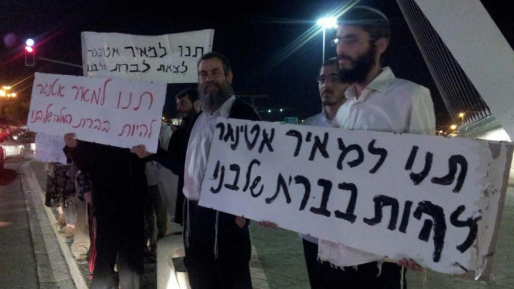 תנו למאיר אטינגר
לצאת לברית לבנו
תנו למאיר אטינגר
להיות בברית המילה שלבנו
תנו למאיר אטינגר
להיות בברית שלבנו